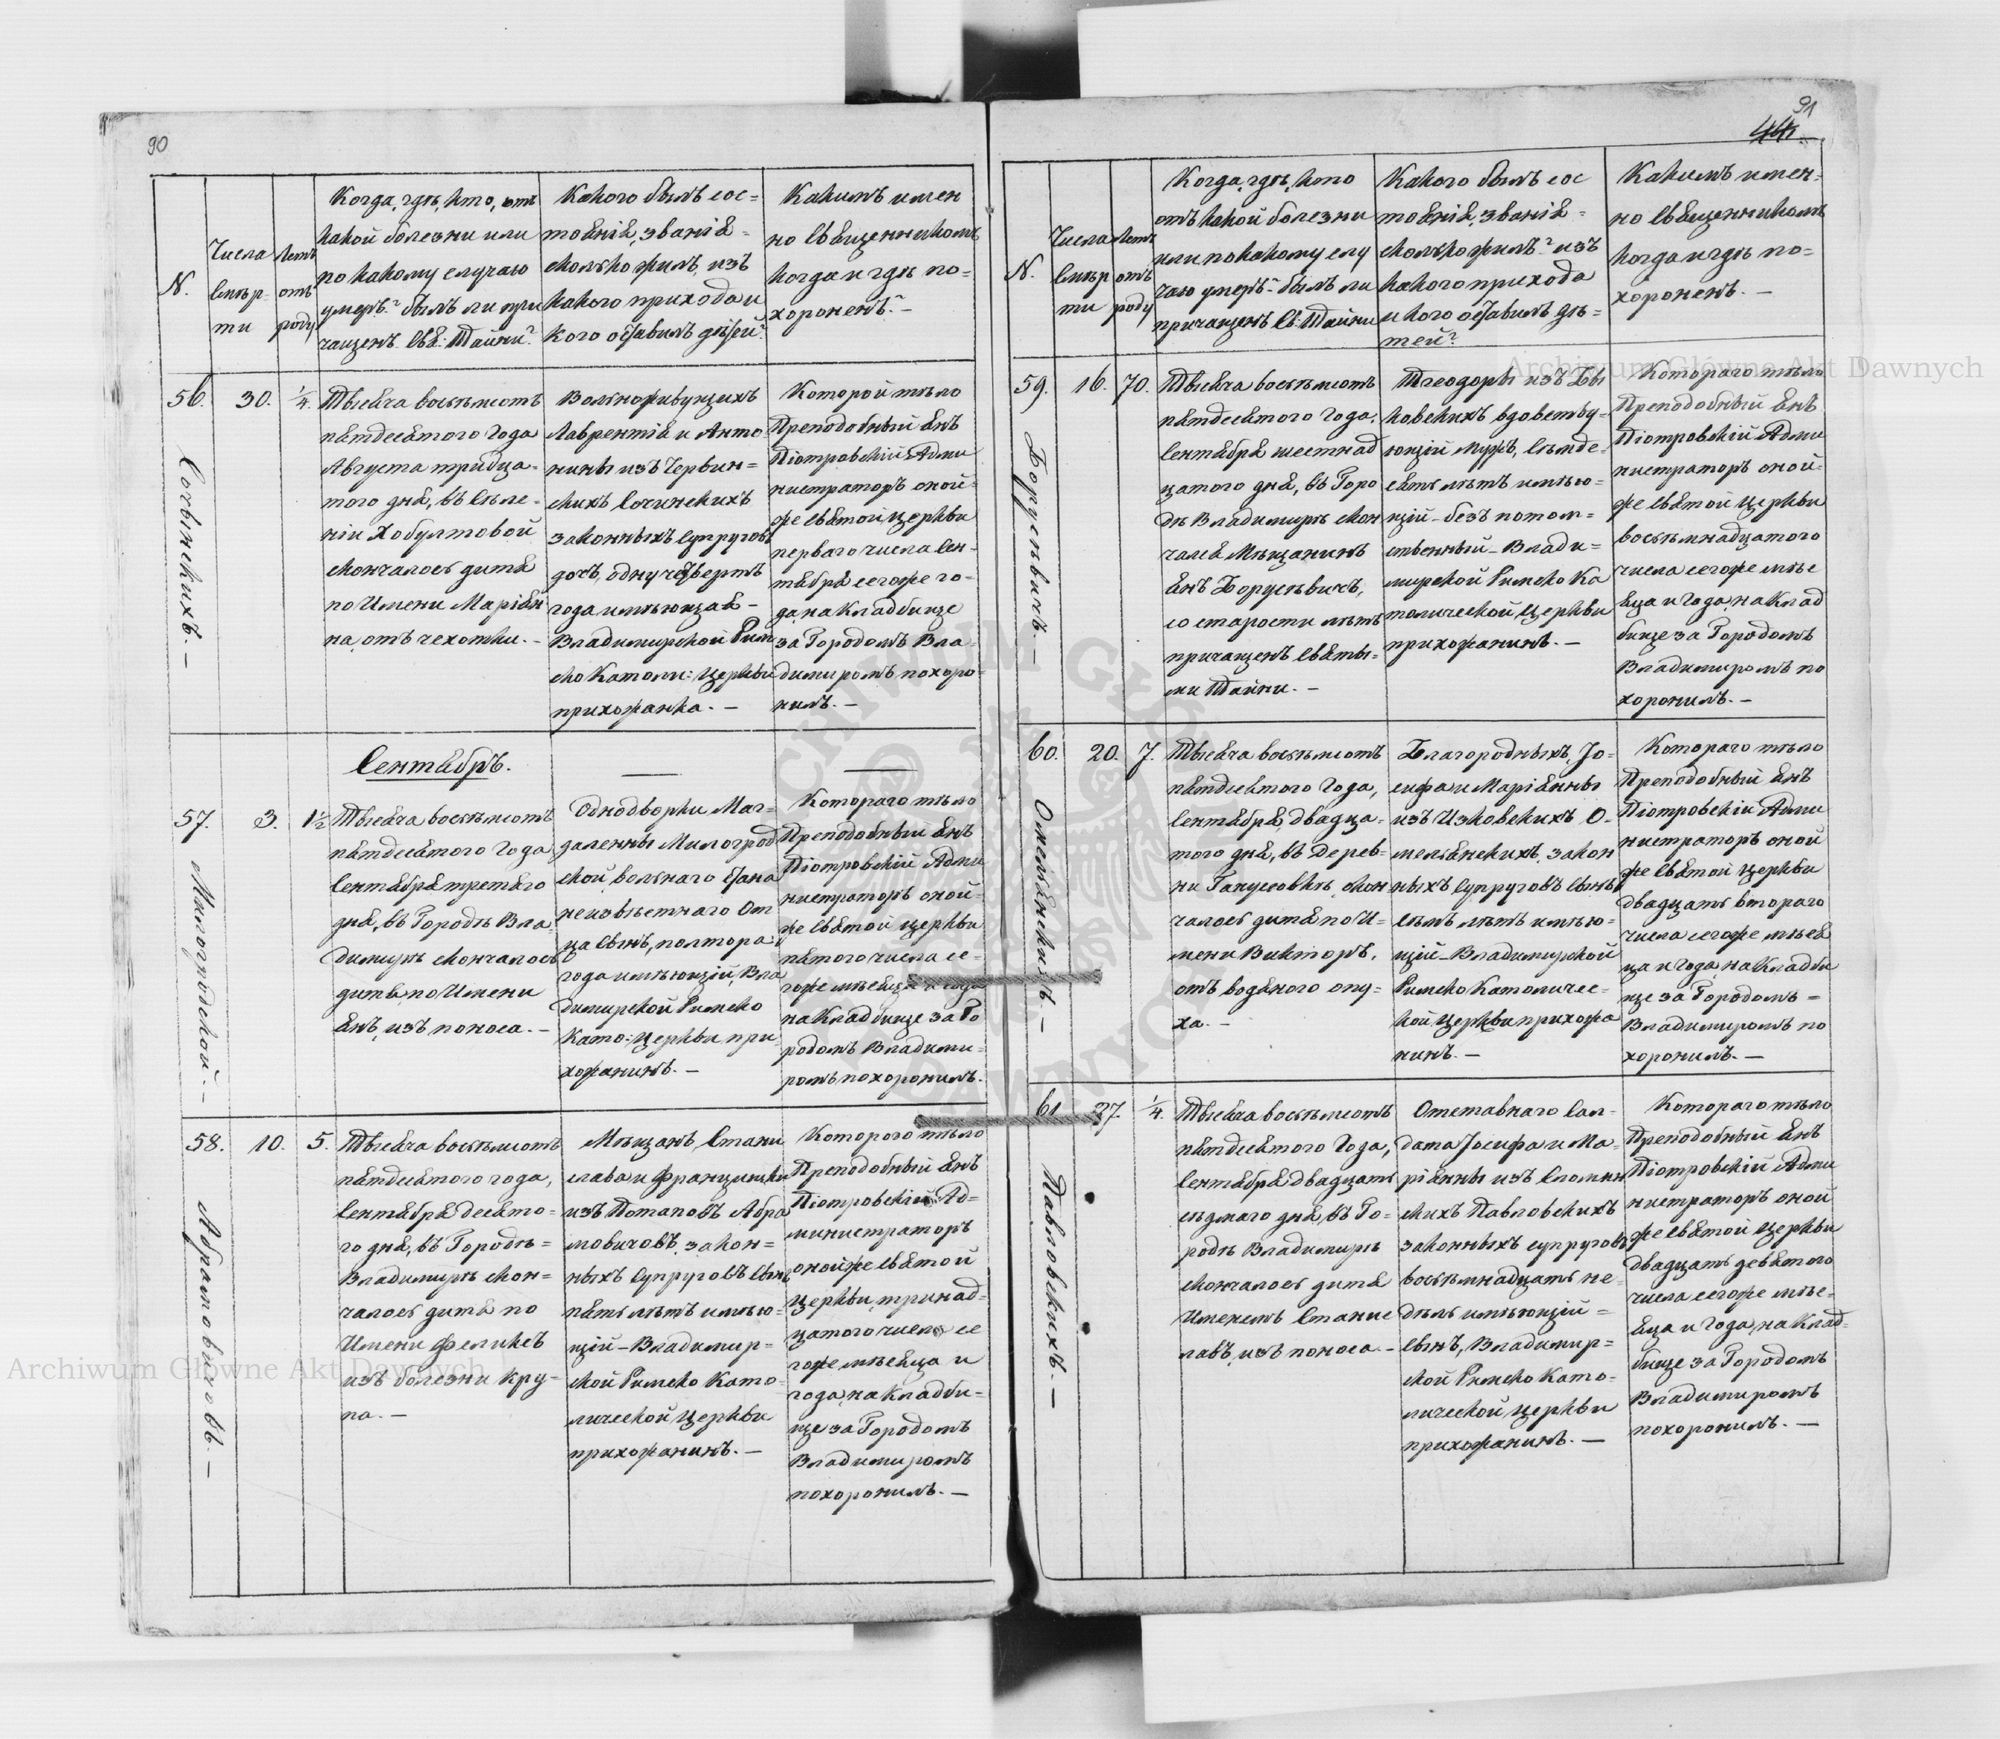 90
N.
Числа
Смѣр-
ти
Летъ
отъ
роду
Когда, гдѣ, кто, отъ
какой болезни или
по какому случаю
умеръ? былъ ли при
чащенъ Свя: Тайни?
Какого былъ сос=
тоянія, званія =
сколько жилъ, изъ
какого прихода и
кого оставилъ дѣтей?
Какимъ имен
но Священникомъ
когда и гдѣ по=
хороненъ? —
56.
Сочинскихъ. —
30.
¼.
Тысяча восѣмсотъ
пятдесятого Года
Августа тридца=
того дня, въ Сѣле=
ніи Хобултовой
скончалось дитя
по Имени Маріян
на, отъ чехотки. —
Вольноживущихъ
Лаврентія и Анто
нины изъ Червин=
скихъ Сочинскихъ
законныхъ Супруговъ
дочь, одну четверть
года имѣющая —
Владимирской Рим
ско Католи: Церкви
прихожанка. —
Которой тѣло
Преподобный Янъ
Піотровскій Адми
нистраторъ оной-
же Святой Церкви
перваго числа Сен-
тября сегоже го-
да, на Кладбище
за Городомъ Вла-
димиромъ похоро-
нилъ. —
Сентябрь.
57.
Милогродской. —
3.
1½
Тысяча восѣмсотъ
пятдесятого Года
Сентября третяго
дня, въ Городѣ Вла-
димирѣ скончалось
дитя, по Имени
Янъ, изъ поноса. —
Однодворки Маг=
далены Милогрод
ской, вольнаго стана
неизвѣстнаго От
ца сынъ, полтора
года имѣющій, Вла
димирской Римско
Като: Церкви при-
хожанинъ. —
Котораго тѣло
Преподобный Янъ
Піотровскій Адми
нистраторъ оной-
же Святой Церкви
пятого числа се-
гоже мѣсяца и года
на Кладбище за Го
родомъ Владими-
ромъ похоронилъ.
58.
Абрамовичовъ. —
10.
5.
Тысяча восѣмсотъ
пятдесятого года,
Сентября десято-
го дня, въ Городѣ =
Владимирѣ скон=
чалось дитя по
Имени Феликсъ
изъ болезни кру-
па. —
Мѣщанъ Стани
слава и Францишки
изъ Потаповъ Абра
мовичовъ, закон=
ныхъ Супруговъ сынъ
пять лѣтъ имѣю-
щій — Владимир=
ской Римско Като-
лической Церкви
прихожанинъ. —
Которого тѣло
Преподобный Янъ
Піотровскій Ад=
министраторъ
онойже Святой
Церкви, тринад-
цатого числа се
гоже мѣсяца и
года, на кладби-
ще за Городомъ
Владимиромъ
похоронилъ. —
91
44.
N.
Числа
Смѣр
ти
Летъ
отъ
роду
Когда, гдѣ, кто
отъ какой болезни
или по какому слу
чаю умеръ? былъ ли
причащенъ Св: Тайни
Какого былъ сос
тоянія, званія =
сколько жилъ? изъ
какого прихода
и кого оставилъ дѣ=
тей?
Какимъ имен-
но Священникомъ
когда и гдѣ по=
хороненъ. —
59.
Борусѣвичъ. —
16.
70.
Тысяча восѣмсотъ
пятдесятого Года,
Сентября шестнад
цатого дня, въ Горо
дѣ Владимирѣ скон
чался Мѣщанинъ
Янъ Борусѣвичъ,
со старости лѣтъ
причащенъ Святы-
ми Тайни. —
Ѳеодоры изъ
вдовству-
ющій мужъ, сѣмде-
сятъ лѣтъ имѣю-
щій — безъ потом=
ственный — Влади=
мирской Римско Ка
толической Церкви
прихожанинъ. —
Котораго тѣло
Преподобный Янъ
Піотровскій Адми
нистраторъ оной-
же Святой Церкви
восѣмнадцатого
числа сегоже мѣс
яца и Года, на Клад
бище за Городомъ
Владимиромъ по
хоронилъ. —
60.
Омелянскихъ. —
20.
7.
Тысяча восѣмсотъ
пятдесятого Года,
Сентября, двадца-
того дня, въ Дерев-
ни Ганусовкѣ, скон
чалось дитя по И-
мени Викторъ,
отъ водяного опу-
ха. —
Благородныхъ, Јо-
сифа и Маріянны
изъ Изковскихъ О-
мелянскихъ, закон
ныхъ Супруговъ сынъ
сѣмъ лѣтъ имѣю-
щій — Владимирской
Римско Католичес-
кой, Церкви прихожа
нинъ. —
Котораго тѣло
Преподобный Янъ
Піотровскій Адми
нистраторъ оной
же Святой Церкви
двадцать второго
числа сегоже мѣся
ца и Года, на Кладби
ще за Городомъ =
Владимиромъ по
хоронилъ. —
61
Павловскихъ. —
27.
¼.
Тысяча восѣмсотъ
пятдесятого Года,
Сентября двадцать
сѣдмаго дня, въ Го-
родѣ Владимирѣ
скончалось дитя
Именемъ Станис
лавъ, изъ поноса —
Отставнаго Сол-
дата Јосифа и Ма-
ріянны изъ Сломин
скихъ Павловскихъ
законныхъ супруговъ
восѣмнадцать не-
дѣль имѣющій =
сынъ, Владимир=
ской Римско Като-
лической Церкви
прихожанинъ. —
Котораго тѣло
Преподобный Янъ
Піотровскій Адми
нистраторъ оной
же Святой Церкви
двадцать девятого
числа сегоже мѣс-
яца и Года, на Клад-
бище за Городомъ
Владимиромъ
похоронилъ. —
Archiwum Główne Akt Dawnych
Archiwum Główne Akt Dawnych